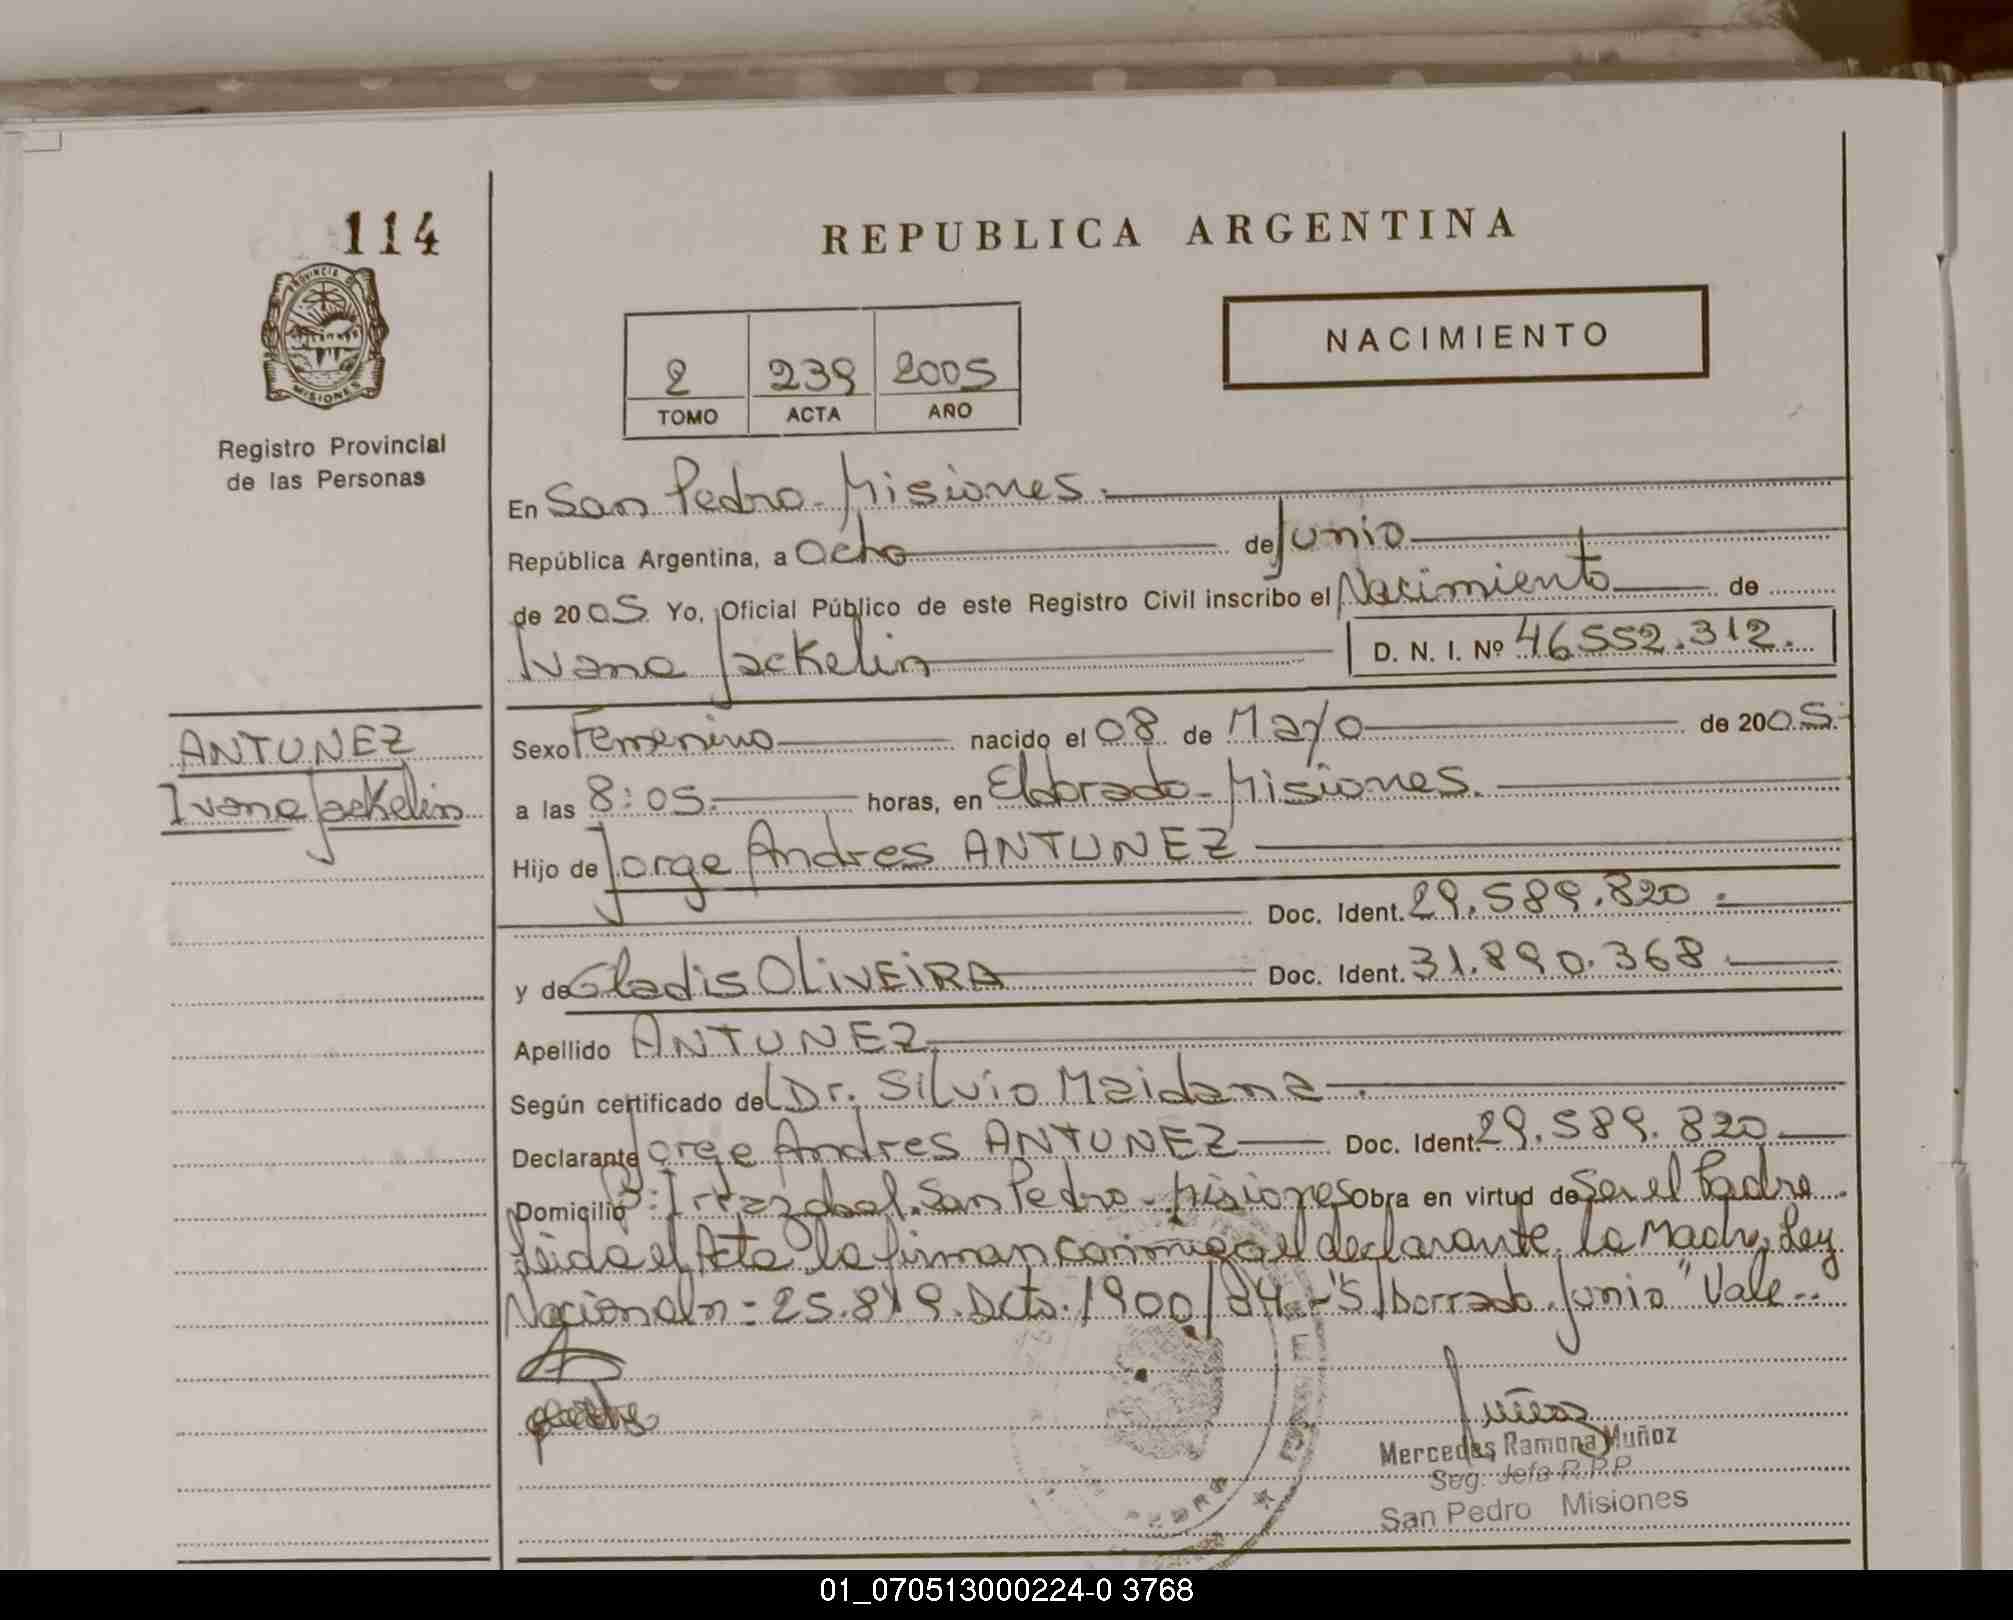 114
REPUBLICA ARGENTINA
PROVINCIA DE
MISIONES
NACIMIENTO
2 239 2005
TOMO ACTA AÑO
Registro Provincial
de las Personas
En San Pedro - Misiones.
República Argentina, a Ocho de Junio
de 2005 Yo, Oficial Público de este Registro Civil inscribo el Nacimiento de
Ivana Jackelin D. N. I. Nº 46.552.312.
ANTUNEZ
Ivana Jackelin
Sexo Femenino nacido el 08 de Mayo de 2005.
a las 8:05. horas, en Eldorado - Misiones.
Hijo de Jorge Andres ANTUNEZ
Doc. Ident. 29.589.820.
y de Gladis OLIVEIRA Doc. Ident. 31.890.368.
Apellido ANTUNEZ
Según certificado del Dr. Silvio Maidana.
Declarante Jorge Andres ANTUNEZ Doc. Ident. 29.589.820
Domicilio Bº: Irrazabal. San Pedro - Misiones Obra en virtud de Ser el Padre.
Leida el Acta la firman conmigo el declarante, la Madre, Ley
Nacional nº 25.819. Dcto. 1900/04. - "S/borrado. Junio" Vale -.
Mercedes Ramona Muñoz
Seg. Jefe R.P.P.
San Pedro Misiones
01_070513000224-0 3768